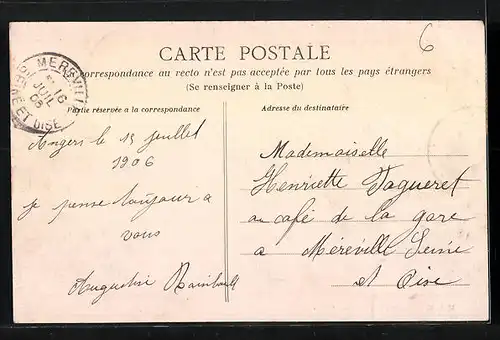 6
CARTE POSTALE
correspondance au recto n'est pas acceptée par tous les pays étrangers
(Se renseigner à la Poste)
Partie réservée a la correspondance
Adresse du destinataire
MEREVILLE
16
JUIL
06
SEINE ET OISE
Angers le 15 juillet
1906
je pense toujour a
vous
Augustine
Mademoiselle
Henriette Jagueret
au café de la gare
a Méréville Seine
et Oise